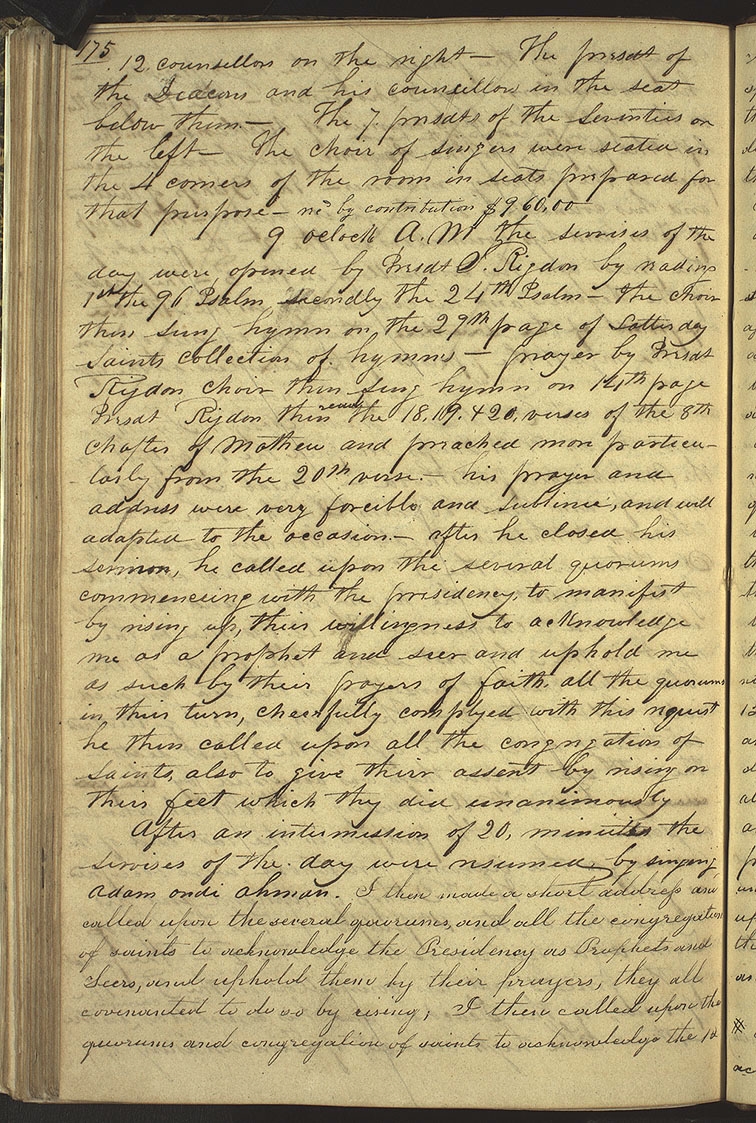 175
12 counsellors on the right— The presdt of
the Deacons and his councillors in the seat
below them.— The 7 presdts of the Seventies on
the left— The choir of singers were seated in
the 4 corners of the room in seats prepared for
that purpose— by contribution $960,00
9 oclock A.M the servises of the
day were opened by Presdt S. Rigdon by reading
1st the 96 Psalm secondly the 24th Psalm— the choir
then sung hymn on the 29th page of Latterday
Saints collection of hymns— prayer by Presdt
Rigdon choir then sung hymn on 14th page
Presdt Rigdon then read the 18, 19. & 20, verses of the 8th
chapter of Mathew and preached more particu-
larly from the 20th verse.— his prayer and
address were very forcible and sublime, and well
adapted to the occasion.— after he closed his
sermon, he called upon the several quorums
commenceing with the presidency, to manifest
by rising up, their willingness to acknowledge
me as a prophet and seer and uphold me
as such by their prayers of faith, all the quorums
in their turn, cheerfully complyed with this request
he then called upon all the congregation of
Saints, also to give their assent by rising on
their feet which they did unanimously
After an intermission of 20, minutes the
servises of the day were resumed, by singing
Adam ondi ahman. I then made a short address and
called upon the several quorums, and all the congregation
of saints to acknowledge the Presidency as Prophets and
Seers, and uphold them by their prayers, they all
covenanted to do so by rising; I then called upon the
quorums and congregation of saints to acknowledge the 12